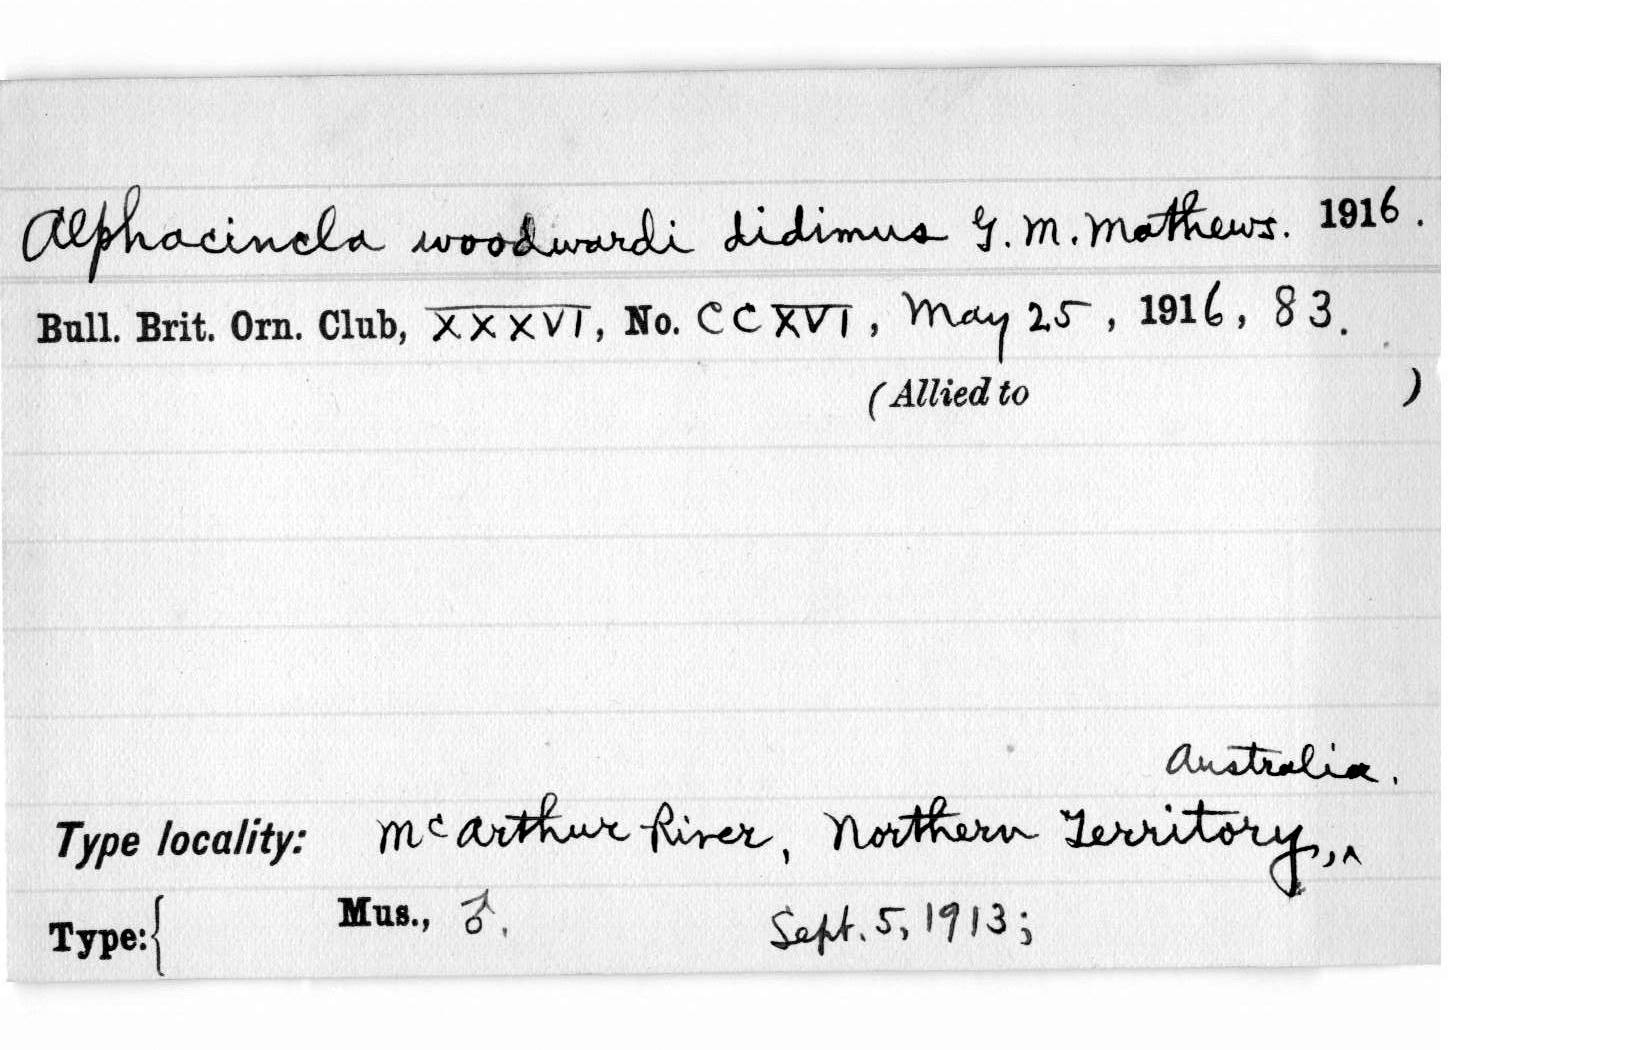 Alphacincla woodwardi didimus G. M. Mathews. 1916.
Bull. Brit. Orn. Club, XXXVI, No. CCXVI, May 25, 1916, 83.
(Allied to )
Australia.
Type locality: McArthur River, Northern Territory,, ^
Type:{ Mus., ♂. Sept. 5, 1913;